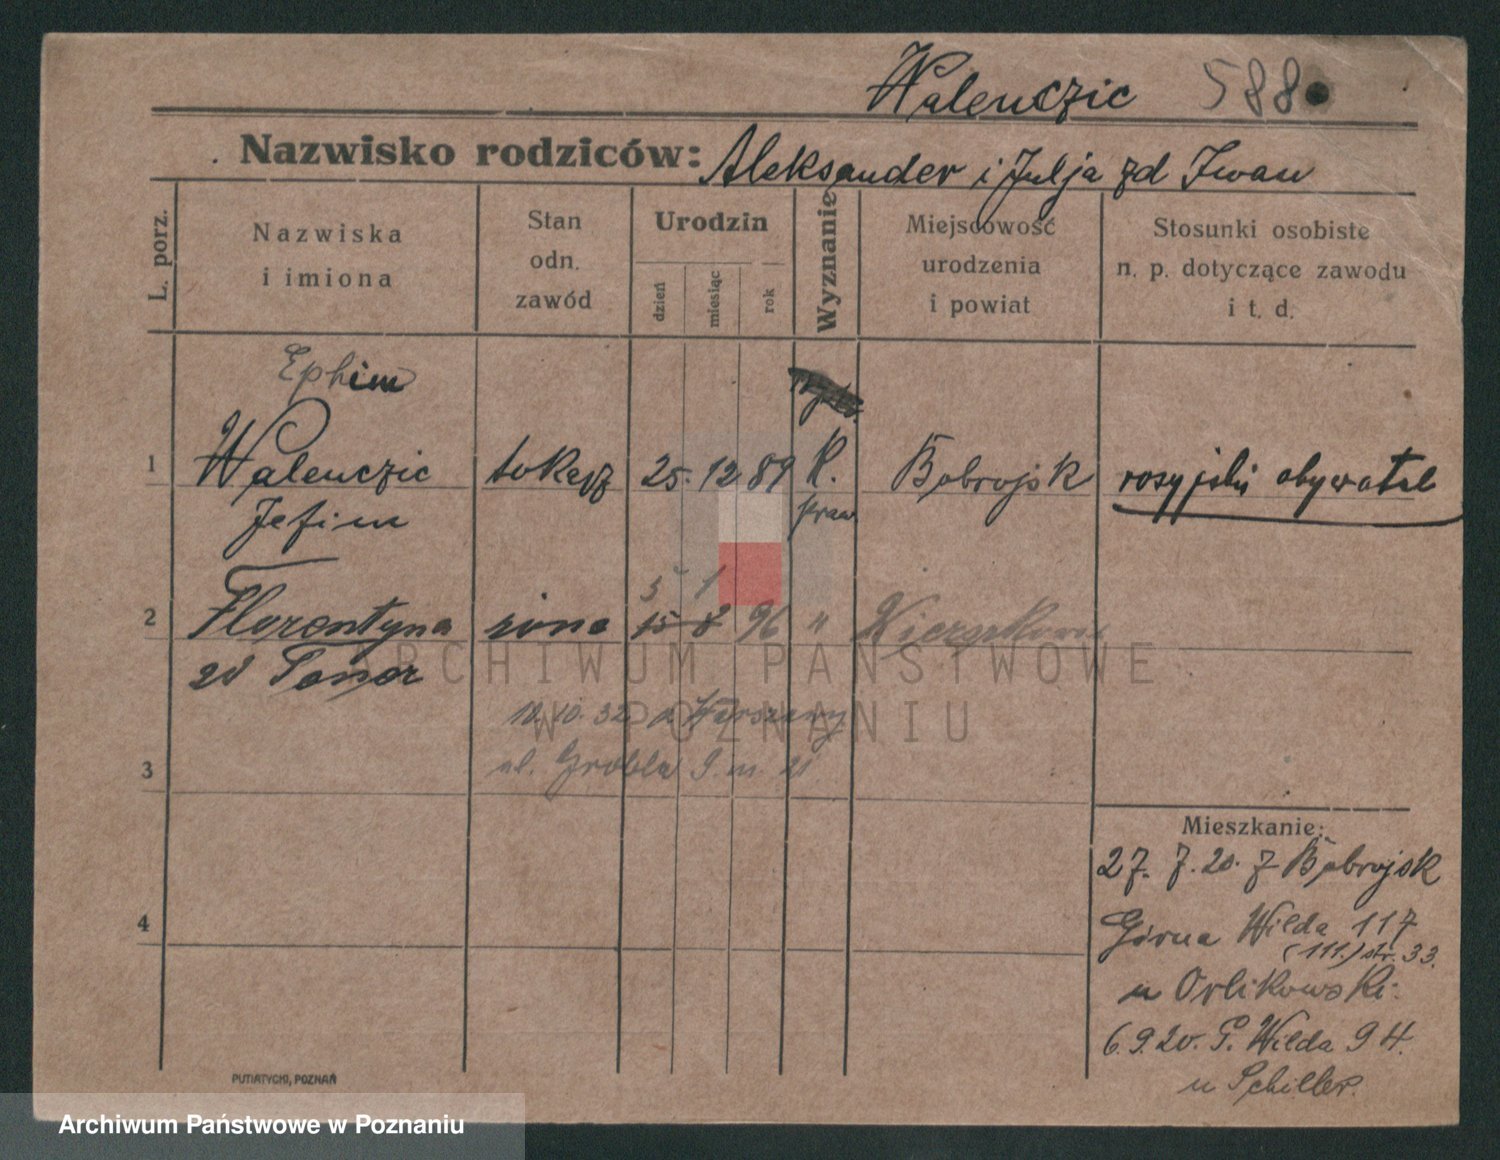 Walenczic 588
Nazwisko rodziców: Aleksander i Julja zd Iwan
L. porz.
Nazwiska
i imiona
Stan
odn.
zawód
Urodzin
dzień
miesiąc
rok
Wyznanie
Miejscowość
urodzenia
i powiat
Stosunki osobiste
n. p. dotyczące zawodu
i t. d.
Ephim
1 Walenczic tokarz 25. 12 89 R. Bobrojsk rosyjski obywatel
Jefim praw.
5 1
2 Florentyna żona 15 8 96 "
zd
10. 32 z Warszawy
3 ul. Grobla 9 m. 21
Mieszkanie:
27. 7. 20. z Bobrojsk
4 Górna Wilda 117
(111.) str. 33.
u Orlikowski.
6. 9. 20. G. Wilda 94.
u Schiller.
PUTIATYCKI, POZNAŃ
ARCHIWUM PAŃSTWOWE
W POZNANIU
Archiwum Państwowe w Poznaniu